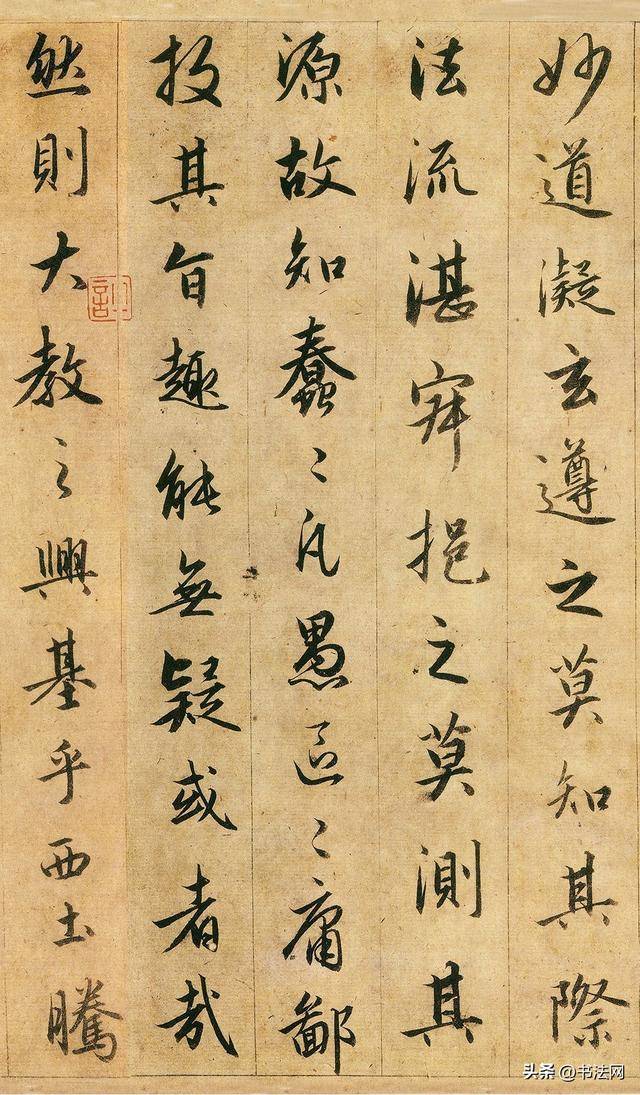 妙道凝玄遵之莫知其際
法流湛寂挹之莫測其
源故知蠢〻凡愚區〻庸鄙
投其旨趣能無疑或者哉
然則大教之興基乎西土騰
头条 @书法网